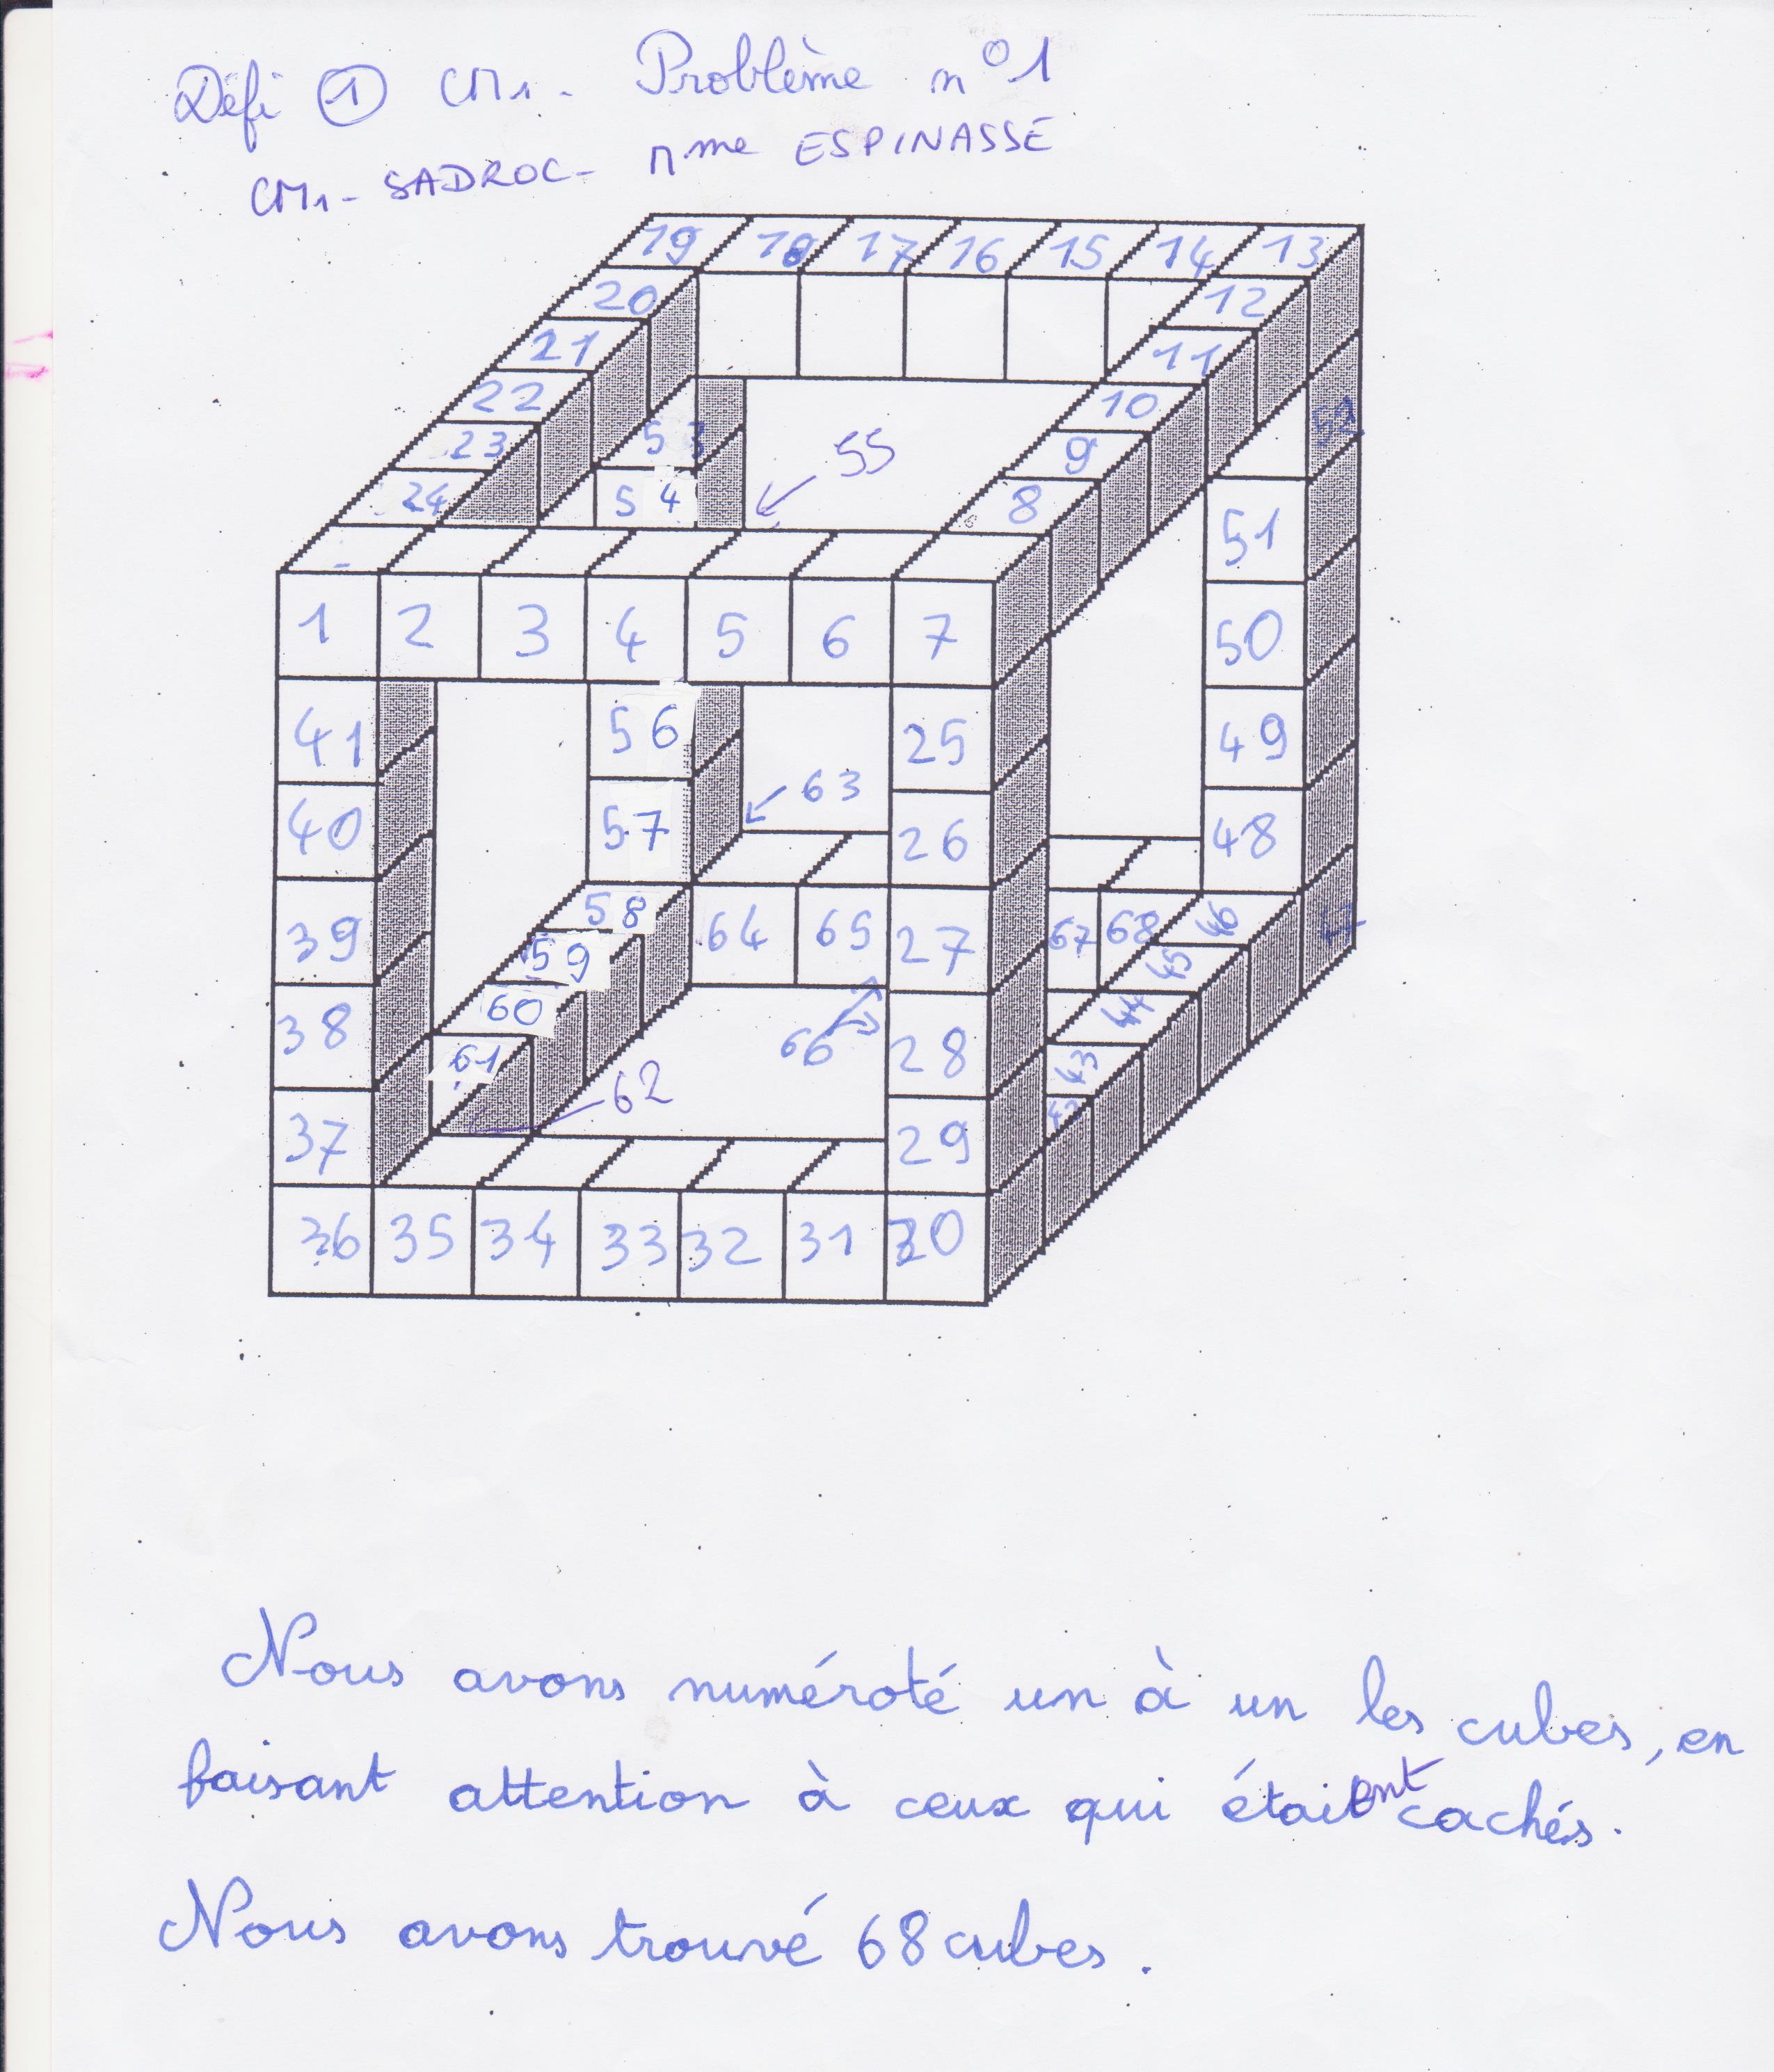 Défi ① CM1. Problème n°1
CM1 - SADROC - Mme ESPINASSE
19 18 17 16 15 14 13
20 12
21 11
22 10
23 53 55 9 52
24 54 8
51
1 2 3 4 5 6 7
50
41 56 25 49
40 57 63 26 48
39 58 64 65 27 67 68 46 47
59 45
38 60 66 28 44
61 43
37 62 29 42
36 35 34 33 32 31 30
Nous avons numéroté un à un les cubes, en
faisant attention à ceux qui étaient cachés.
Nous avons trouvé 68 cubes.